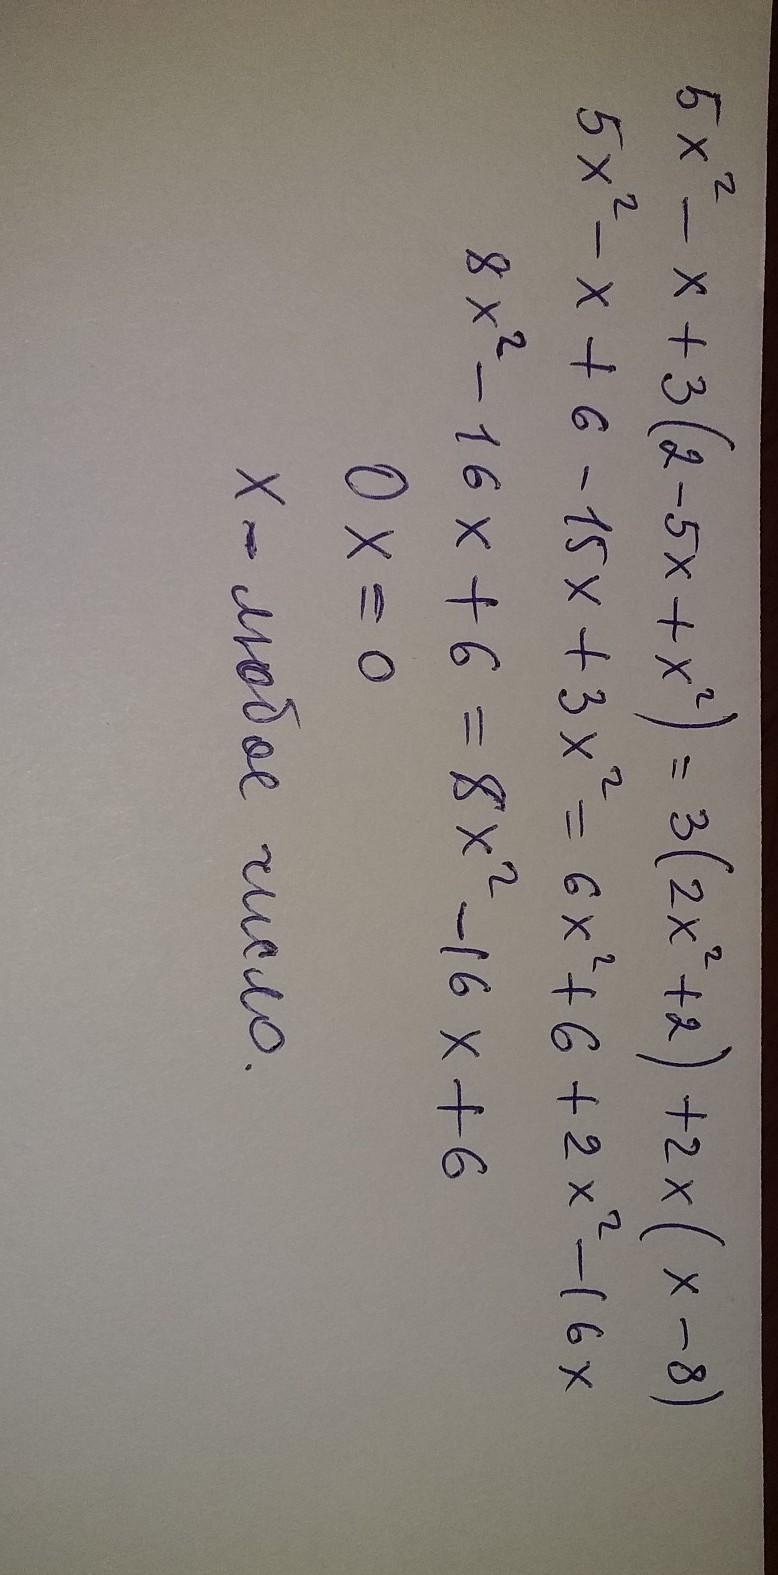 5x² - x + 3(2 - 5x + x²) = 3(2x² + 2) + 2x(x - 8)
5x² - x + 6 - 15x + 3x² = 6x² + 6 + 2x² - 16x
8x² - 16x + 6 = 8x² - 16x + 6
0x = 0
x - любое число.